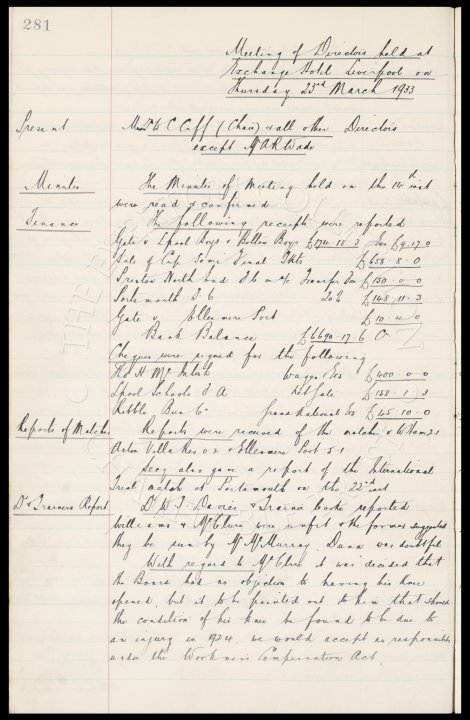 281
Meeting of Directors held at
Exchange Hotel Liverpool on
Thursday 23rd March 1933
Present Messrs W C Cuff (Chair) & all other Directors
except Mr A R Wade
Minutes The Minutes of Meeting held on the 14th inst
were read & confirmed
Finance The following receipts were reported
Gate v Lpool Boys v Bolton Boys £174.18.3 £9.17.0
Sale of Cup Semi Final Tkts £658.8.0
Preston North End F C Transfer £150.0.0
Portsmouth F C Do £148.11.3
Gate v Ellesmere Port £10.4.0
Bank Balance £6690.17.6
Cheques were signed for the following
Thos H McIntosh Wages £400.0.0
Lpool Schools F A Gate £158.1.3
Ribble Bus Co Grand National £45.10.0
Reports of Matches Reports were received of the matches v W Ham 2.1
Aston Villa Res 0.2 & Ellesmere Port 5.1
Secy also gave a report of the International
Trial match at Portsmouth on the 22nd inst
Dr & Trainers Report Dr W F Davies & Trainer Cooke reported
Williams & McClure were unfit & the former suggested
they be seen by Mr McMurray. Dunn was doubtful
With regard to McClure it was decided that
the Board had no objection to having his knee
opened, but it to be pointed out to him that should
the condition of his knee be found to be due to
an injury in 1924, we would accept no responsibility
under the Workmens Compensation Act.